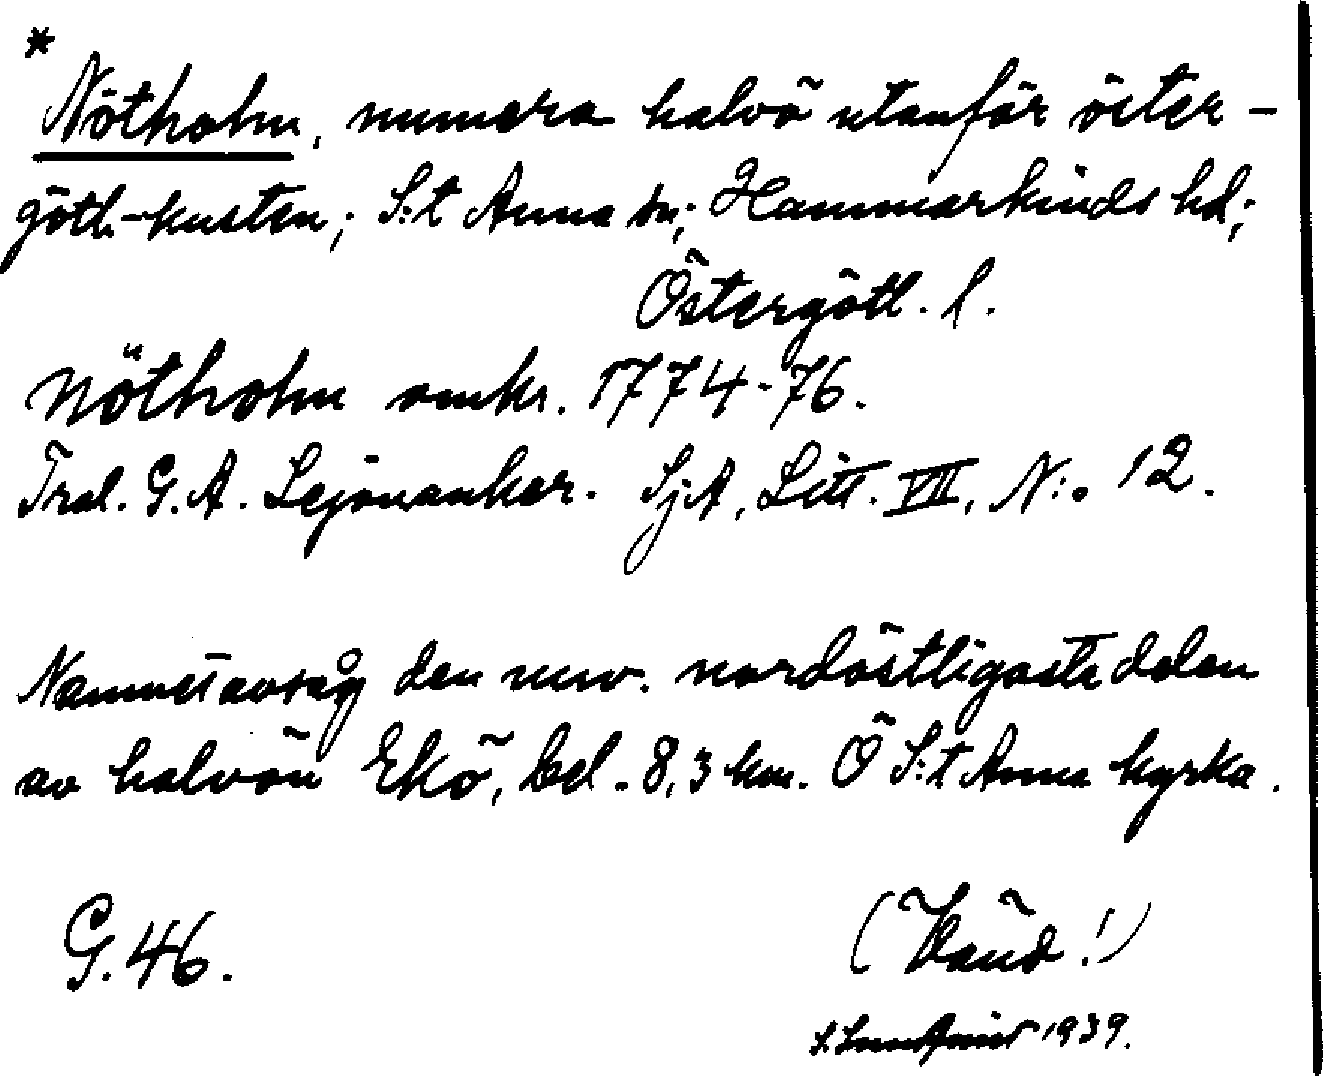 *
Nötholm, numera halvö utanför öster-
götl.-kusten; S:t Anna sn; Hammarkinds hd;
Östergötl. l.
Nötholm omkr. 1774-76.
Tral. G. A. Lejonanker. SjA, Litt. VII, N:o 12.
Namnet avsåg den nuv. nordöstligaste delen
av halvön Ekö, bel. 8,3 km. Ö S:t Anna kyrka.
G. 46.
(Vänd!)
1939.